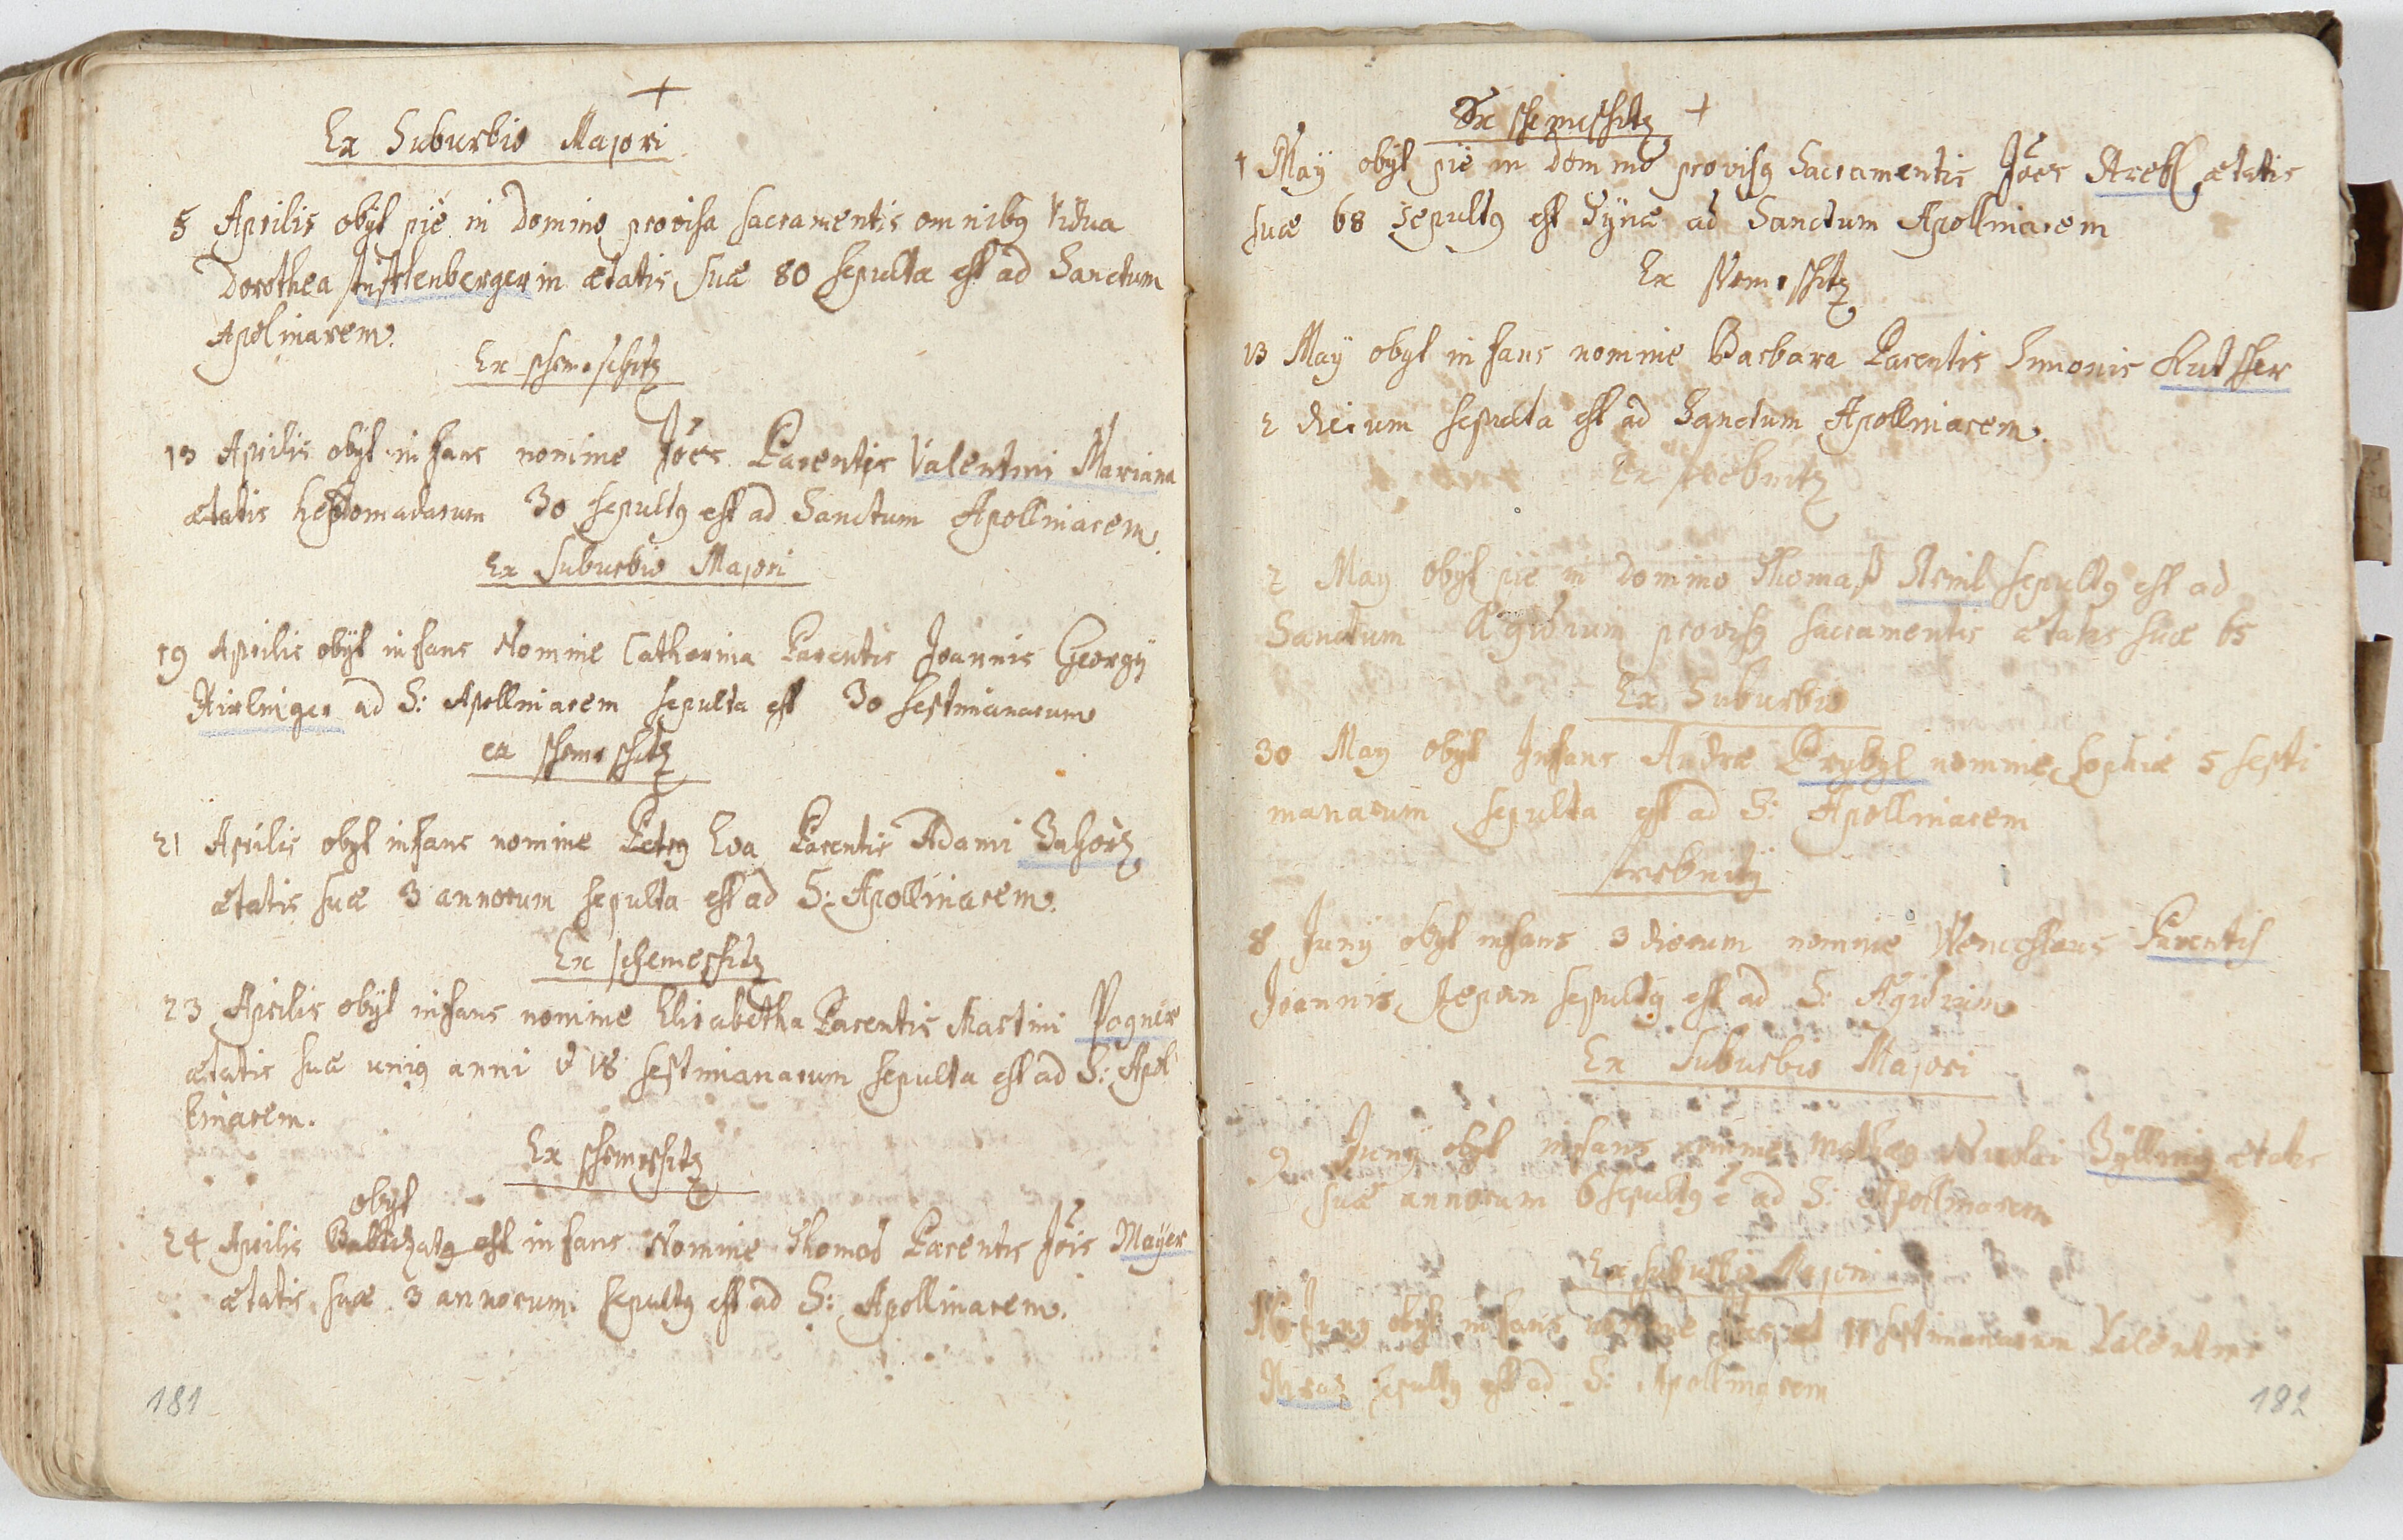 +
Ex Suburbio Majori
5 Aprilis obyt pie in Domino provisa sacramentis omnibq Vidua
Dorothea in ætatis suæ 80 sepulta est ad Sanctum
Apolinarem.
Ex schemeschitz
13 Aprilis obyt infans nomine Jŏes Parentis Valentini Mariana
ætatis hebdomadarum 30 sepultq est ad Sanctum Apollinarem.
Ex Suburbio Majori
19 Aprilis obÿt infans Nomine Catharina Parentis Joannis Georgÿ
ad S: Apollinarem sepulta est 30 septimanarum
ex schemeschitz
21 Aprilis obyt infans nomine Eva Parentis Adami
ætatis suæ 3 annorum sepulta est ad S: Apollinarem.
Ex schemeschitz
23 Aprilis obÿt infans nomine Elisabetha Parentis Martini Pogner
ætatis suæ uniq anni & 18 septimanarum sepulta est ad S: Apol
linarem.
Ex schemeschitz
obyt
24 Aprilis est infans Nomine Thomas Parentis Jŏis Maÿer
ætatis suæ 3 annorum sepultq est ad S: Apollinarem.
181
Ex schemeschitz +
1 Maÿ obÿt pie in domino provisq Sacramentis Jŏes ætatis
suæ 68 sepultq est ad Sanctum Apollinarem
Ex
13 Maÿ obyt infans nomine Barbara Parentis Simonis Kutscher
2 dierum sepulta est ad Sanctum Apollinarem.
Ex strebnitz
2 May obÿt pie in domino Thomas sepultq est ad
Sanctum Ægidium provisq sacramentis ætatis suæ 65
Ex Suburbio
30 May obÿt Infans Andræ Prybyl nomine Sophiæ 5 septi
manarum sepulta est ad S: Apollinarem
8 Junÿ obyt infans 3 dierum nomine Wenceslaus Parentis
Joannis sepultq est ad S: Ægidium
Ex Suburbio Majori
9 Junÿ obyt infans nomine ætatis
suæ annorum 6 sepultq ē ad S: Apollinarem
Ex suburbio Majori
Juny obÿt infans nomine septimanarum Valentini
sepultq est ad S: Apollinarem
182